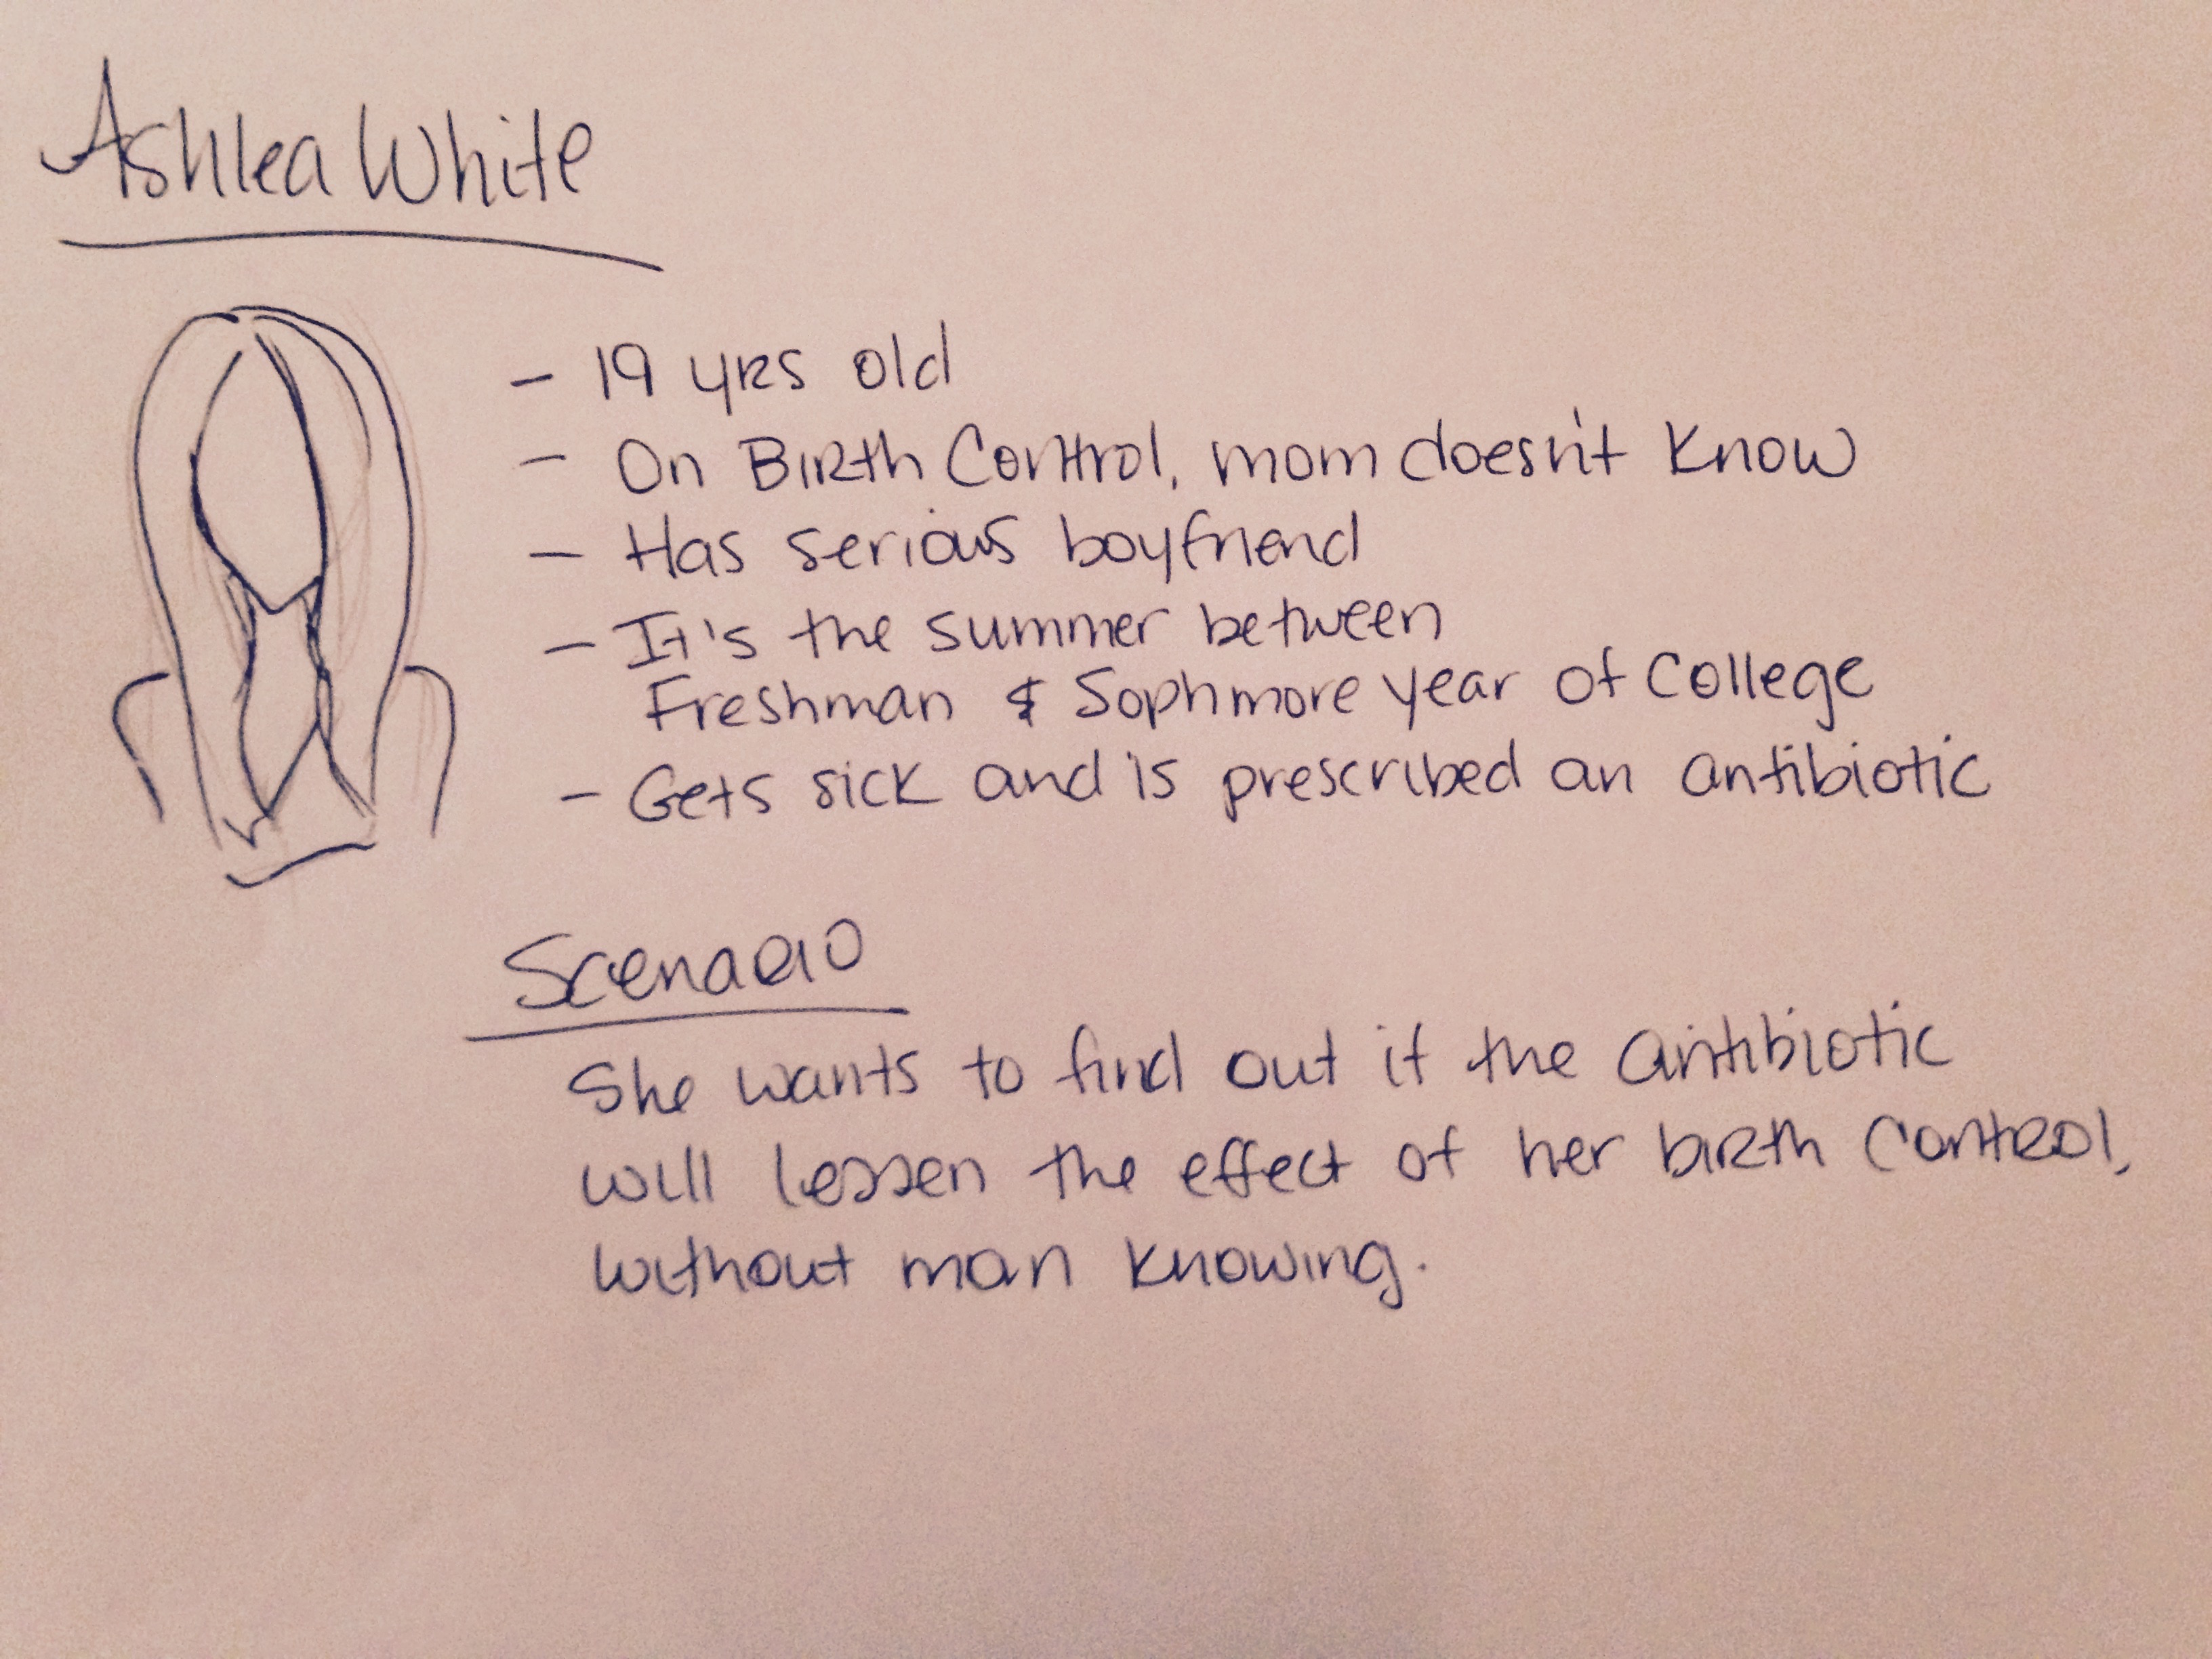 Ashlea White
- 19 yrs old
- On Birth Control, mom doesn't know
- Has serious boyfriend
- It's the summer between
Freshman & Sophmore year of College
- Gets sick and is prescribed an antibiotic
Scenario
She wants to find out if the antibiotic
will lessen the effect of her birth control,
without mom knowing.